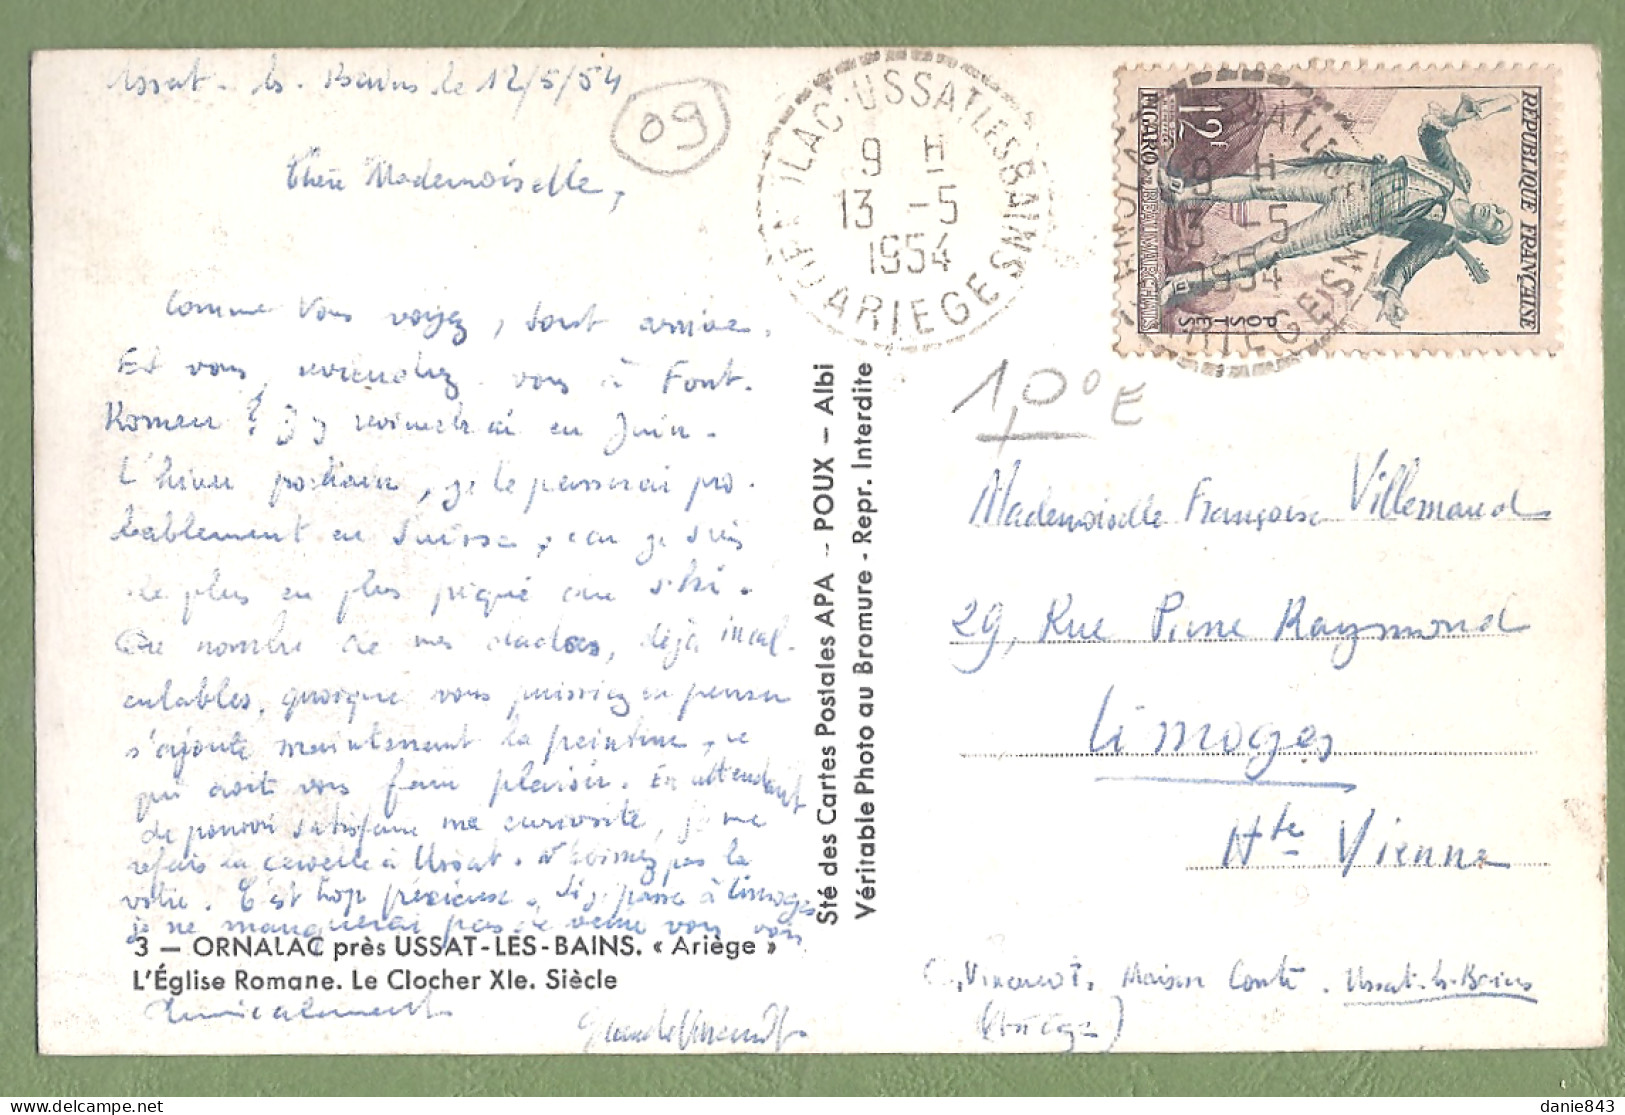 Ussat-les-Bains le 12/5/54
09
Chère Mademoiselle,
Comme vous voyez, suis arrivé.
Et vous, reviendrez-vous à Font-
Romeu ? J'y reviendrai en Juin.
L'hiver prochain, je le passerai pro-
bablement en Suisse, car je suis
de plus en plus piqué au ski.
Au nombre de mes dadas, déjà incal-
culables, quoique vous puissiez en penser
s'ajoute maintenant la peinture, ce
qui doit vous faire plaisir. En attendant
de pouvoir satisfaire ma curiosité, je me
refais la cervelle à Ussat. N'usez pas la
vôtre. C'est trop précieuse. Si je passe à Limoges
je ne manquerai pas de venir vous voir
3 — ORNALAC près USSAT-LES-BAINS. « Ariège »
L'Église Romane. Le Clocher XIe. Siècle
Amicalement
Sté des Cartes Postales APA -- POUX — Albi
Véritable Photo au Bromure - Repr. Interdite
USSAT LES BAINS
9 H
13 -5
1954
ARIEGE
REPUBLIQUE FRANÇAISE
POSTES
12F
FIGARO DE BEAUMARCHAIS
9 H
13 -5
1954
1,00 E
Mademoiselle Françoise Villemaud
29, Rue Pierre Raymond
Limoges
Hte Vienne
Maison Conte. Ussat-les-Bains
(Ariège)
danie843